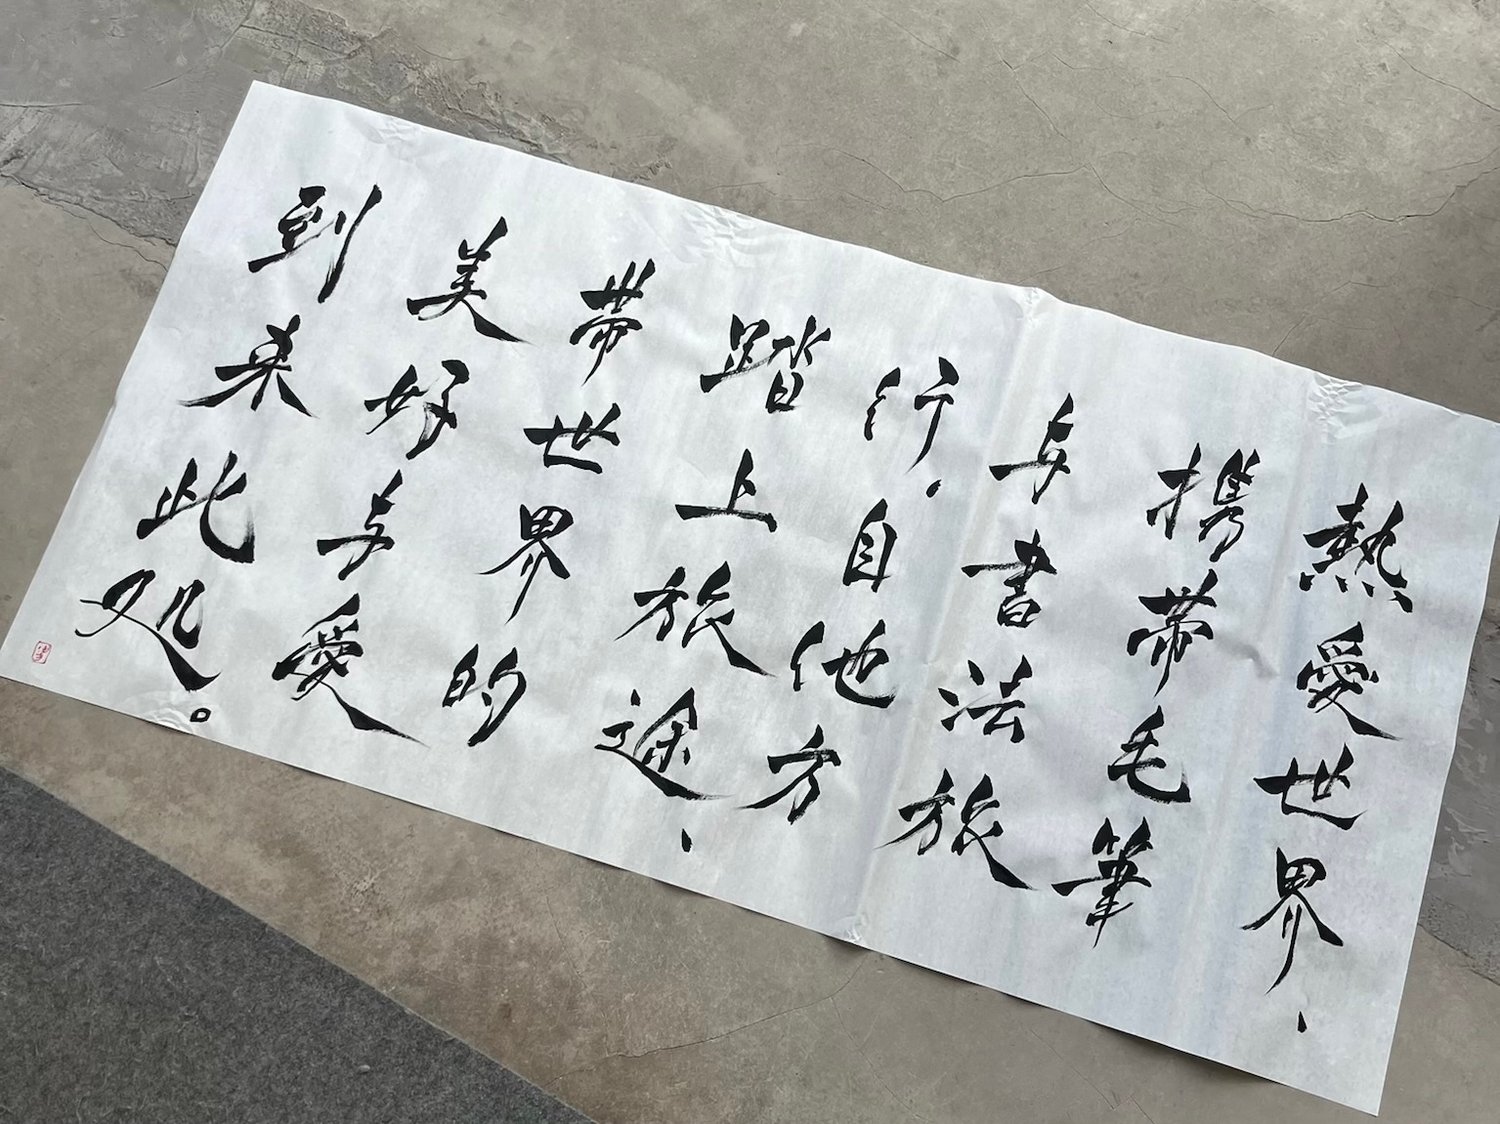 熱愛世界、
攜帶毛筆
与書法旅
行、自他方
踏上旅途、
帶世界的
美好与愛
到来此処。